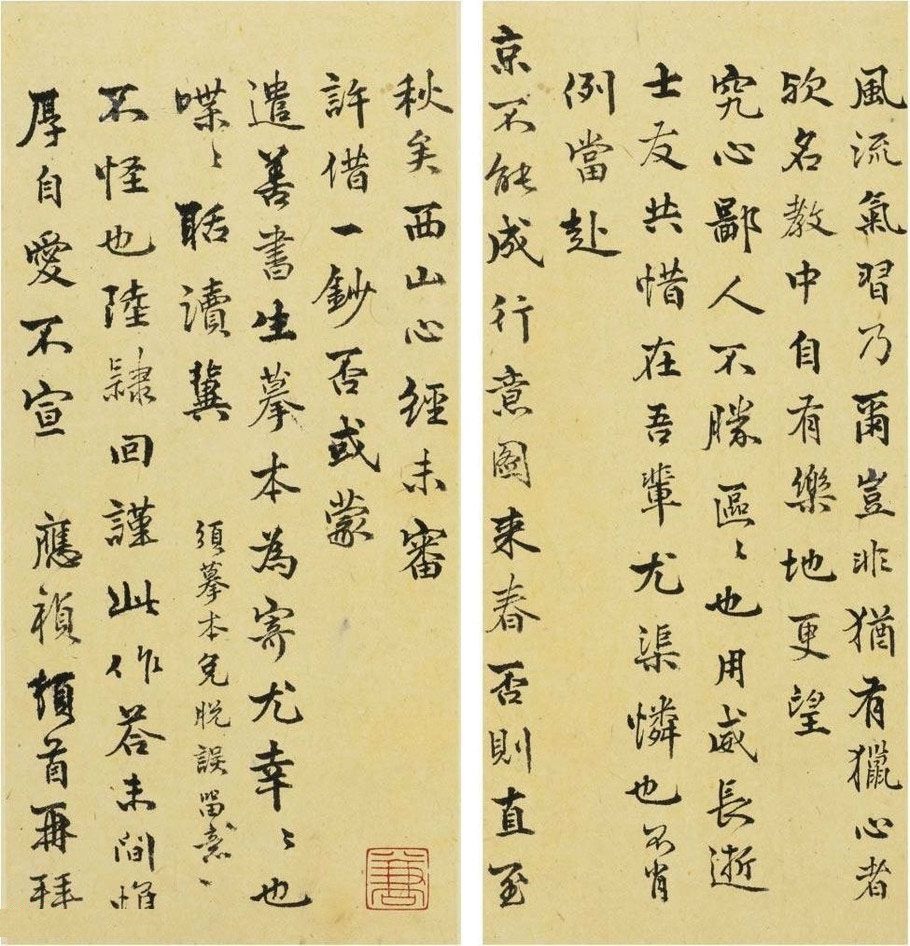 風流氣習乃爾豈非猶有獵心者
欤名教中自有樂地更望
究心鄙人不勝區〻也用威長逝
士友共惜在吾輩尤渠憐也不肖
例當赴
京不能成行意圖来春否則直至
秋矣西山心經未審
許借一鈔否或蒙
遣善書生摹本為寄尤幸〻也
喋〻聒讀冀
須摹本免脱誤留意〻
不怪也陸隸回謹此作荅未間惟
厚自愛不宣 應禎頓首再拜